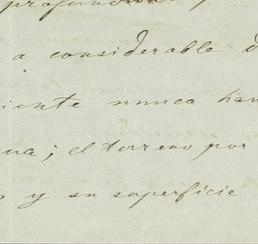 profund
a considerable d
iente nunca han
ua; el terreno por
o y su superficie